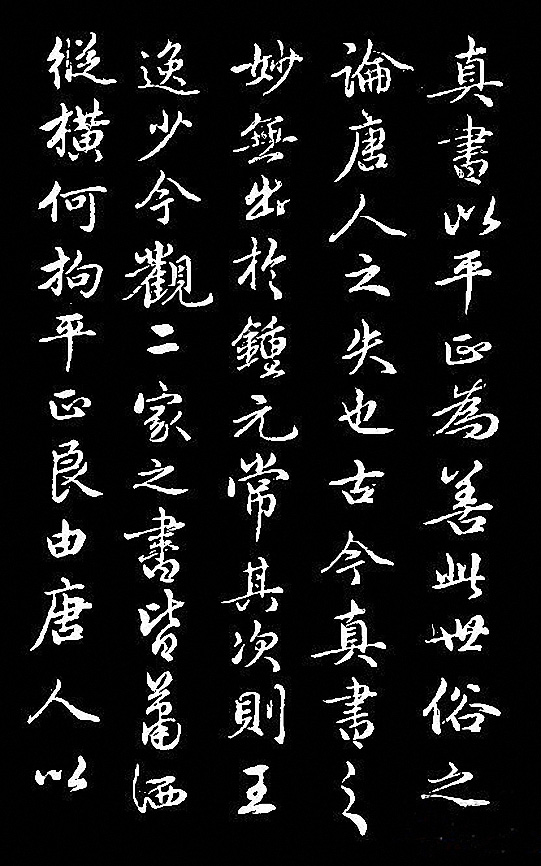 真書以平正為善此世俗之
論唐人之失也古今真書之
妙無出於鍾元常其次則王
逸少今觀二家之書皆蕭洒
縱橫何拘平正良由唐人以